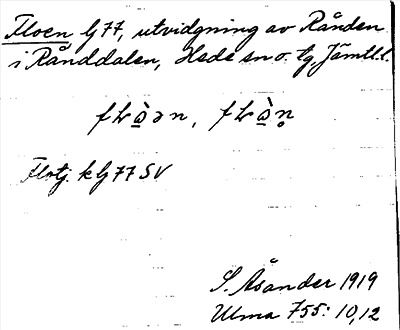 Floen lj 77, utvidgning av Rånden
i Rånddalen, Hede sn o. tg, Jämtl. l.
Flotj. k lj 77 SV
S. Åsander 1919
Ulma 755: 10,12